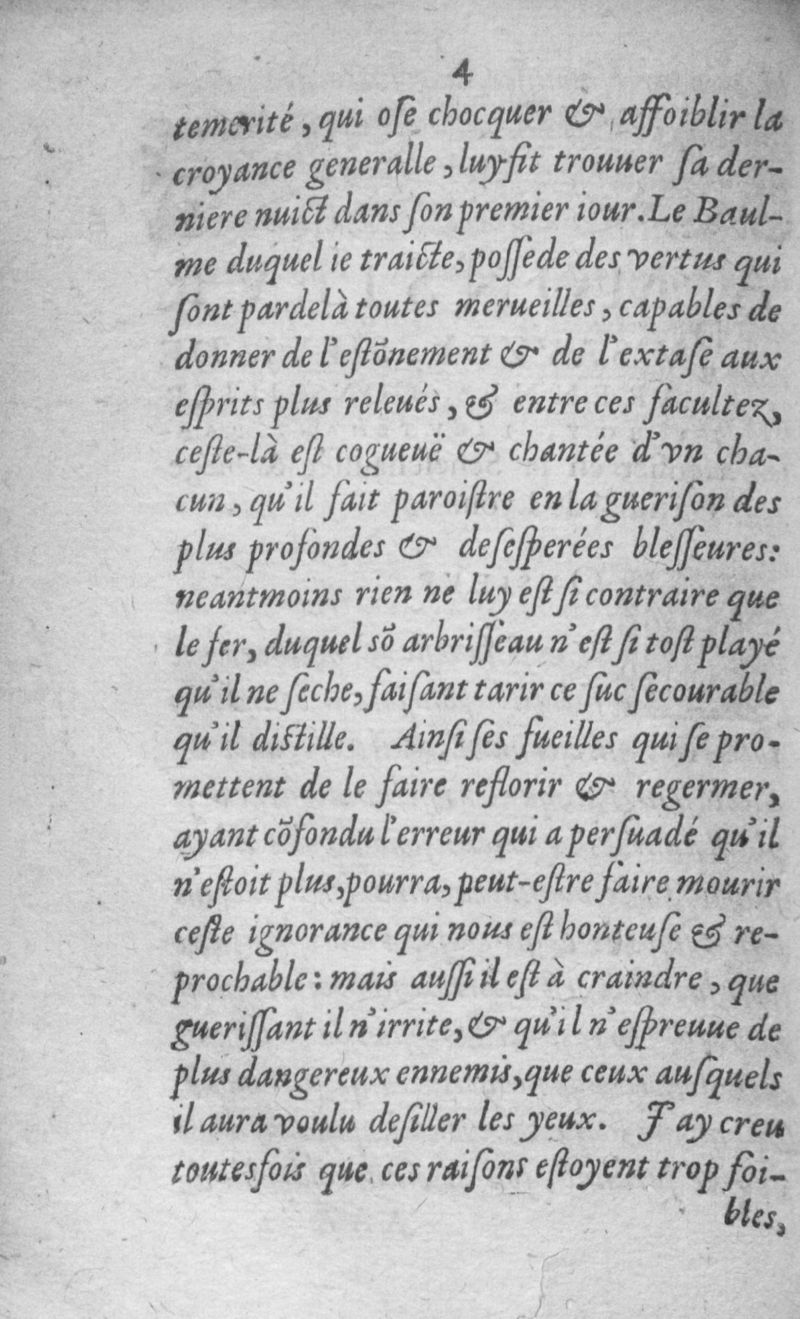 4
temerité, qui ose chocquer & affoiblir la
croyance generalle, luy fit trouuer sa der-
niere nuict dans son premier iour. Le Baul-
me duquel ie traicte, possede des vertus qui
sont pardelà toutes merueilles, capables de
donner de l'estõnement & de l'extase aux
esprits plus releués, & entre ces facultez,
ceste-là est cogueuë & chantée d'vn cha-
cun, qu'il fait paroistre en la guerison des
plus profondes & desesperées blesseures:
neantmoins rien ne luy est si contraire que
le fer, duquel sõ arbrisseau n'est si tost playé
qu'il ne seche, faisant tarir ce suc secourable
qu'il distille. Ainsi ses fueilles qui se pro-
mettent de le faire reflorir & regermer,
ayant cõfondu l'erreur qui a persuadé qu'il
n'estoit plus, pourra, peut-estre faire mourir
ceste ignorance qui nous est honteuse & re-
prochable: mais aussi il est à craindre, que
guerissant il n'irrite, & qu'il n'espreuue de
plus dangereux ennemis, que ceux ausquels
il aura voulu desiller les yeux. J'ay creu
toutesfois que ces raisons estoyent trop foi-
bles,